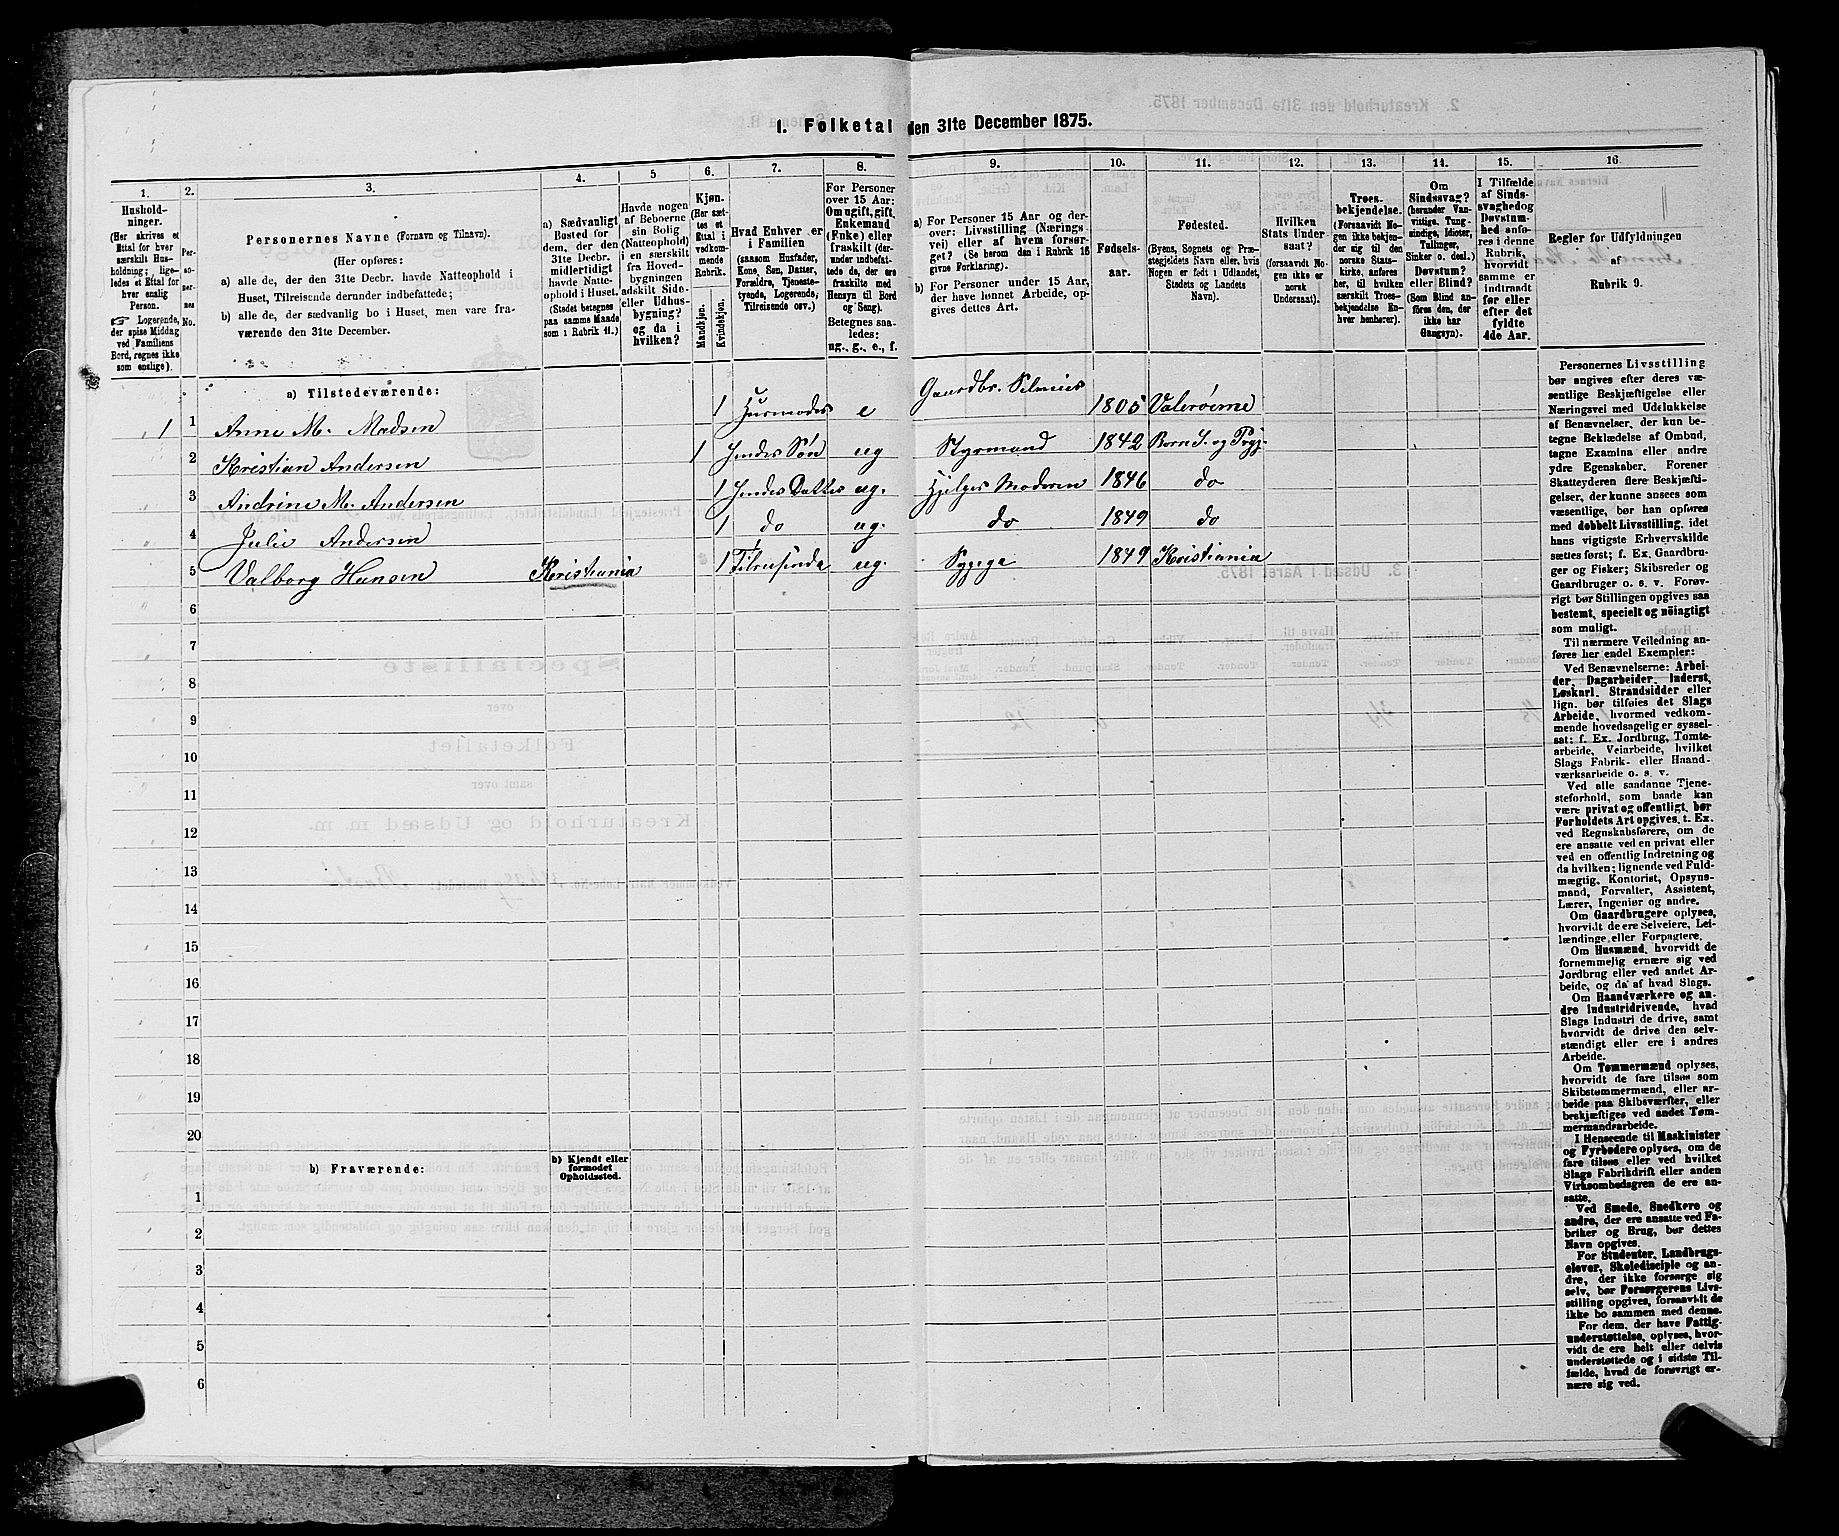 1. Folketal den 31te December 1875.
1. 2. 3. 4. 5 6. 7. 8. 9. 10. 11. 12. 13. 14. 15. 16.
Hushold-
ninger.
(Her skrives et
Ettal for hver
særskilt Hus-
holdning; lige-
ledes et Ettal for
hver enslig
Person.
☞ Logerende,
der spise Middag
ved Familiens
Bord, regnes ikke
som enslige).
Per-
so-
ner-
nes
No.
Personernes Navne (Fornavn og Tilnavn).
(Her opføres:
a) alle de, der den 31te Decbr. havde Natteophold i
Huset, Tilreisende derunder indbefattede;
b) alle de, der sædvanlig bo i Huset, men vare fra-
værende den 31te December.
a) Sædvanligt
Bosted for
dem, der den
31te Decbr.
midlertidigt
havde Natte-
ophold i Huset.
(Stedet betegnes
paa samme Maade
som i Rubrik 11.)
Havde nogen
af Beboerne
sin Bolig
(Natteophold)
i en særskilt
fra Hoved-
bygningen
adskilt Side-
eller Udhus-
bygning?
og da i
hvilken?
Kjøn.
(Her sæt-
tes et
Ettal i
vedkom-
mende
Rubrik.
Mandkjøn.
Kvindekjøn.
Hvad Enhver er
i Familien
(saasom Husfader,
Kone, Søn, Datter,
Forældre, Tjeneste-
tyende, Logerende,
Tilreisende osv.)
For Personer
over 15 Aar:
Om ugift, gift,
Enkemand
(Enke) eller
fraskilt (der-
under indbefat-
tede de, der ere
fraskilte med
Hensyn til Bord
og Seng).
Betegnes saa-
ledes:
ug., g., e., f.
a) For Personer 15 Aar og der-
over: Livsstilling (Nærings-
vei) eller af hvem forsør-
get? (Se herom den i Rubrik 16
givne Forklaring).
b) For Personer under 15 Aar,
der have lønnet Arbeide, op-
gives dettes Art.
Fødsels-
aar.
Fødested.
(Byens, Sognets og Præ-
stegjeldets Navn eller, hvis
Nogen er født i Udlandet,
Stedets og Landets
Navn).
Hvilken
Stats Under-
saat?
(forsaavidt No-
gen ikke er
norsk
Undersaat).
Troes-
bekjendelse.
(Forsaavidt No-
gen ikke bekjen-
der sig til den
norske Stats-
kirke, anføres
her, til hvilken
særskilt Troes-
bekjendelse En-
hver henhører).
Om
Sindssvag?
(herunder Van-
vittige, Tung-
sindige, Idioter,
Tullinger,
Sinker o. desl.)
Døvstum?
eller Blind?
(Som Blind an-
føres den, der
ikke har
Gangsyn).
I Tilfælde
af Sinds-
svaghed og
Døvstum-
hed anfø-
res i denne
Rubrik,
hvorvidt
samme er
indtraadt
før eller
efter det
fyldte
4de Aar.
Regler for Udfyldningen
af
Rubrik 9.
a) Tilstedeværende:
1 1 Anne M. Madsen 1 Husmoder e Gaardbr. Selveier 1805 Valerøerne
2 Kristian Andersen 1 Hendes Søn ug Styrmand 1842 Borre S. og Prgj.
3 Andrine M. Andersen 1 Hendes Datter ug. Hjelper Moderen 1846 do
4 Julie Andersen 1 do ug. do 1849 do
5 Valborg Hansen Kristiania 1 Tilreisende ug. Sypige 1849 Kristiania
6
7
8
9
10
11
12
13
14
15
16
17
18
19
20
b) Fraværende:
b) Kjendt eller
formodet
Opholdssted.
1
2
3
4
5
6
Personernes Livsstilling
bør angives efter deres væ-
sentlige Beskjæftigelse eller
Næringsvei med Udelukkelse
af Benævnelser, der kun be-
tegne Beklædelse af Ombud,
tagne Examina eller andre
ydre Egenskaber. Forener
Skatteyderen flere Beskjæfti-
gelser, der kunne ansees som
væsentlige, bør han opføres
med dobbelt Livsstilling, idet
hans vigtigste Erhvervskilde
sættes først; f. Ex. Gaardbru-
ger og Fisker; Skibsreder og
Gaardbruger o. s. v. Forøv-
rigt bør Stillingen opgives saa
bestemt, specielt og nøiagtigt
som muligt.
Til nærmere Veiledning an-
føres her endel Exempler:
Ved Benævnelserne: Arbei-
der, Dagarbeider, Inderst,
Løskarl, Strandsidder eller
lign. bør tilføies det Slags
Arbeide, hvormed vedkom-
mende hovedsagelig er syssel-
sat; f. Ex. Jordbrug, Tømte-
arbeide, Veiarbeide, hvilket
Slags Fabrik- eller Haand-
værksarbeide o. s. v.
Ved alle saadanne Tjene-
steforhold, som baade kan
være privat og offentligt, bør
Forholdets Art opgives, t. Ex.
ved Regnskabsførere, om de
ere ansatte ved en privat eller
ved en offentlig Indretning og
da hvilken; lignende ved Fuld-
mægtig, Kontorist, Opsyns-
mand, Forvalter, Assistent,
Lærer, Ingeniør og andre.
Om Gaardbrugere oplyses,
hvorvidt de ere Selveiere, Lei-
lændinge eller Forpagtere.
Om Husmænd, hvorvidt de
fornemmelig ernære sig ved
Jordbrug eller ved andet Ar-
beide, og da af hvad Slags.
Om Haandværkere og an-
dre Industridrivende, hvad
Slags Industri de drive, samt
hvorvidt de drive den selv-
stændigt eller ere i andres
Arbeide.
Om Tømmermænd oplyses,
hvorvidt de fare tilsøs som
Skibstømmermænd, eller ar-
beide paa Skibsværfter, eller
beskjæftiges ved andet Tøm-
mermandsarbeide.
I Henseende til Maskinister
og Fyrbødere oplyses, om de
fare tilsøs eller ved hvilket
Slags Fabrikdrift eller anden
Virksombedsgren de ere an-
satte.
Ved Smede, Snedkere og
andre, der ere ansatte ved Fa-
briker og Brug, bør dettes
Navn opgives.
For Studenter, Landbrugs-
elever, Skoledisciple og an-
dre, der ikke forsørge sig
selv, bør Forsørgerens Livs-
stilling opgives, forsaavidt de
ikke bo sammen med denne.
For dem, der have Fattig-
understøttelse, oplyses, hvor-
vidt de ere helt eller delvis
understøttede og i sidste Til-
fælde, hvad de forøvrigt er-
nære sig ved.